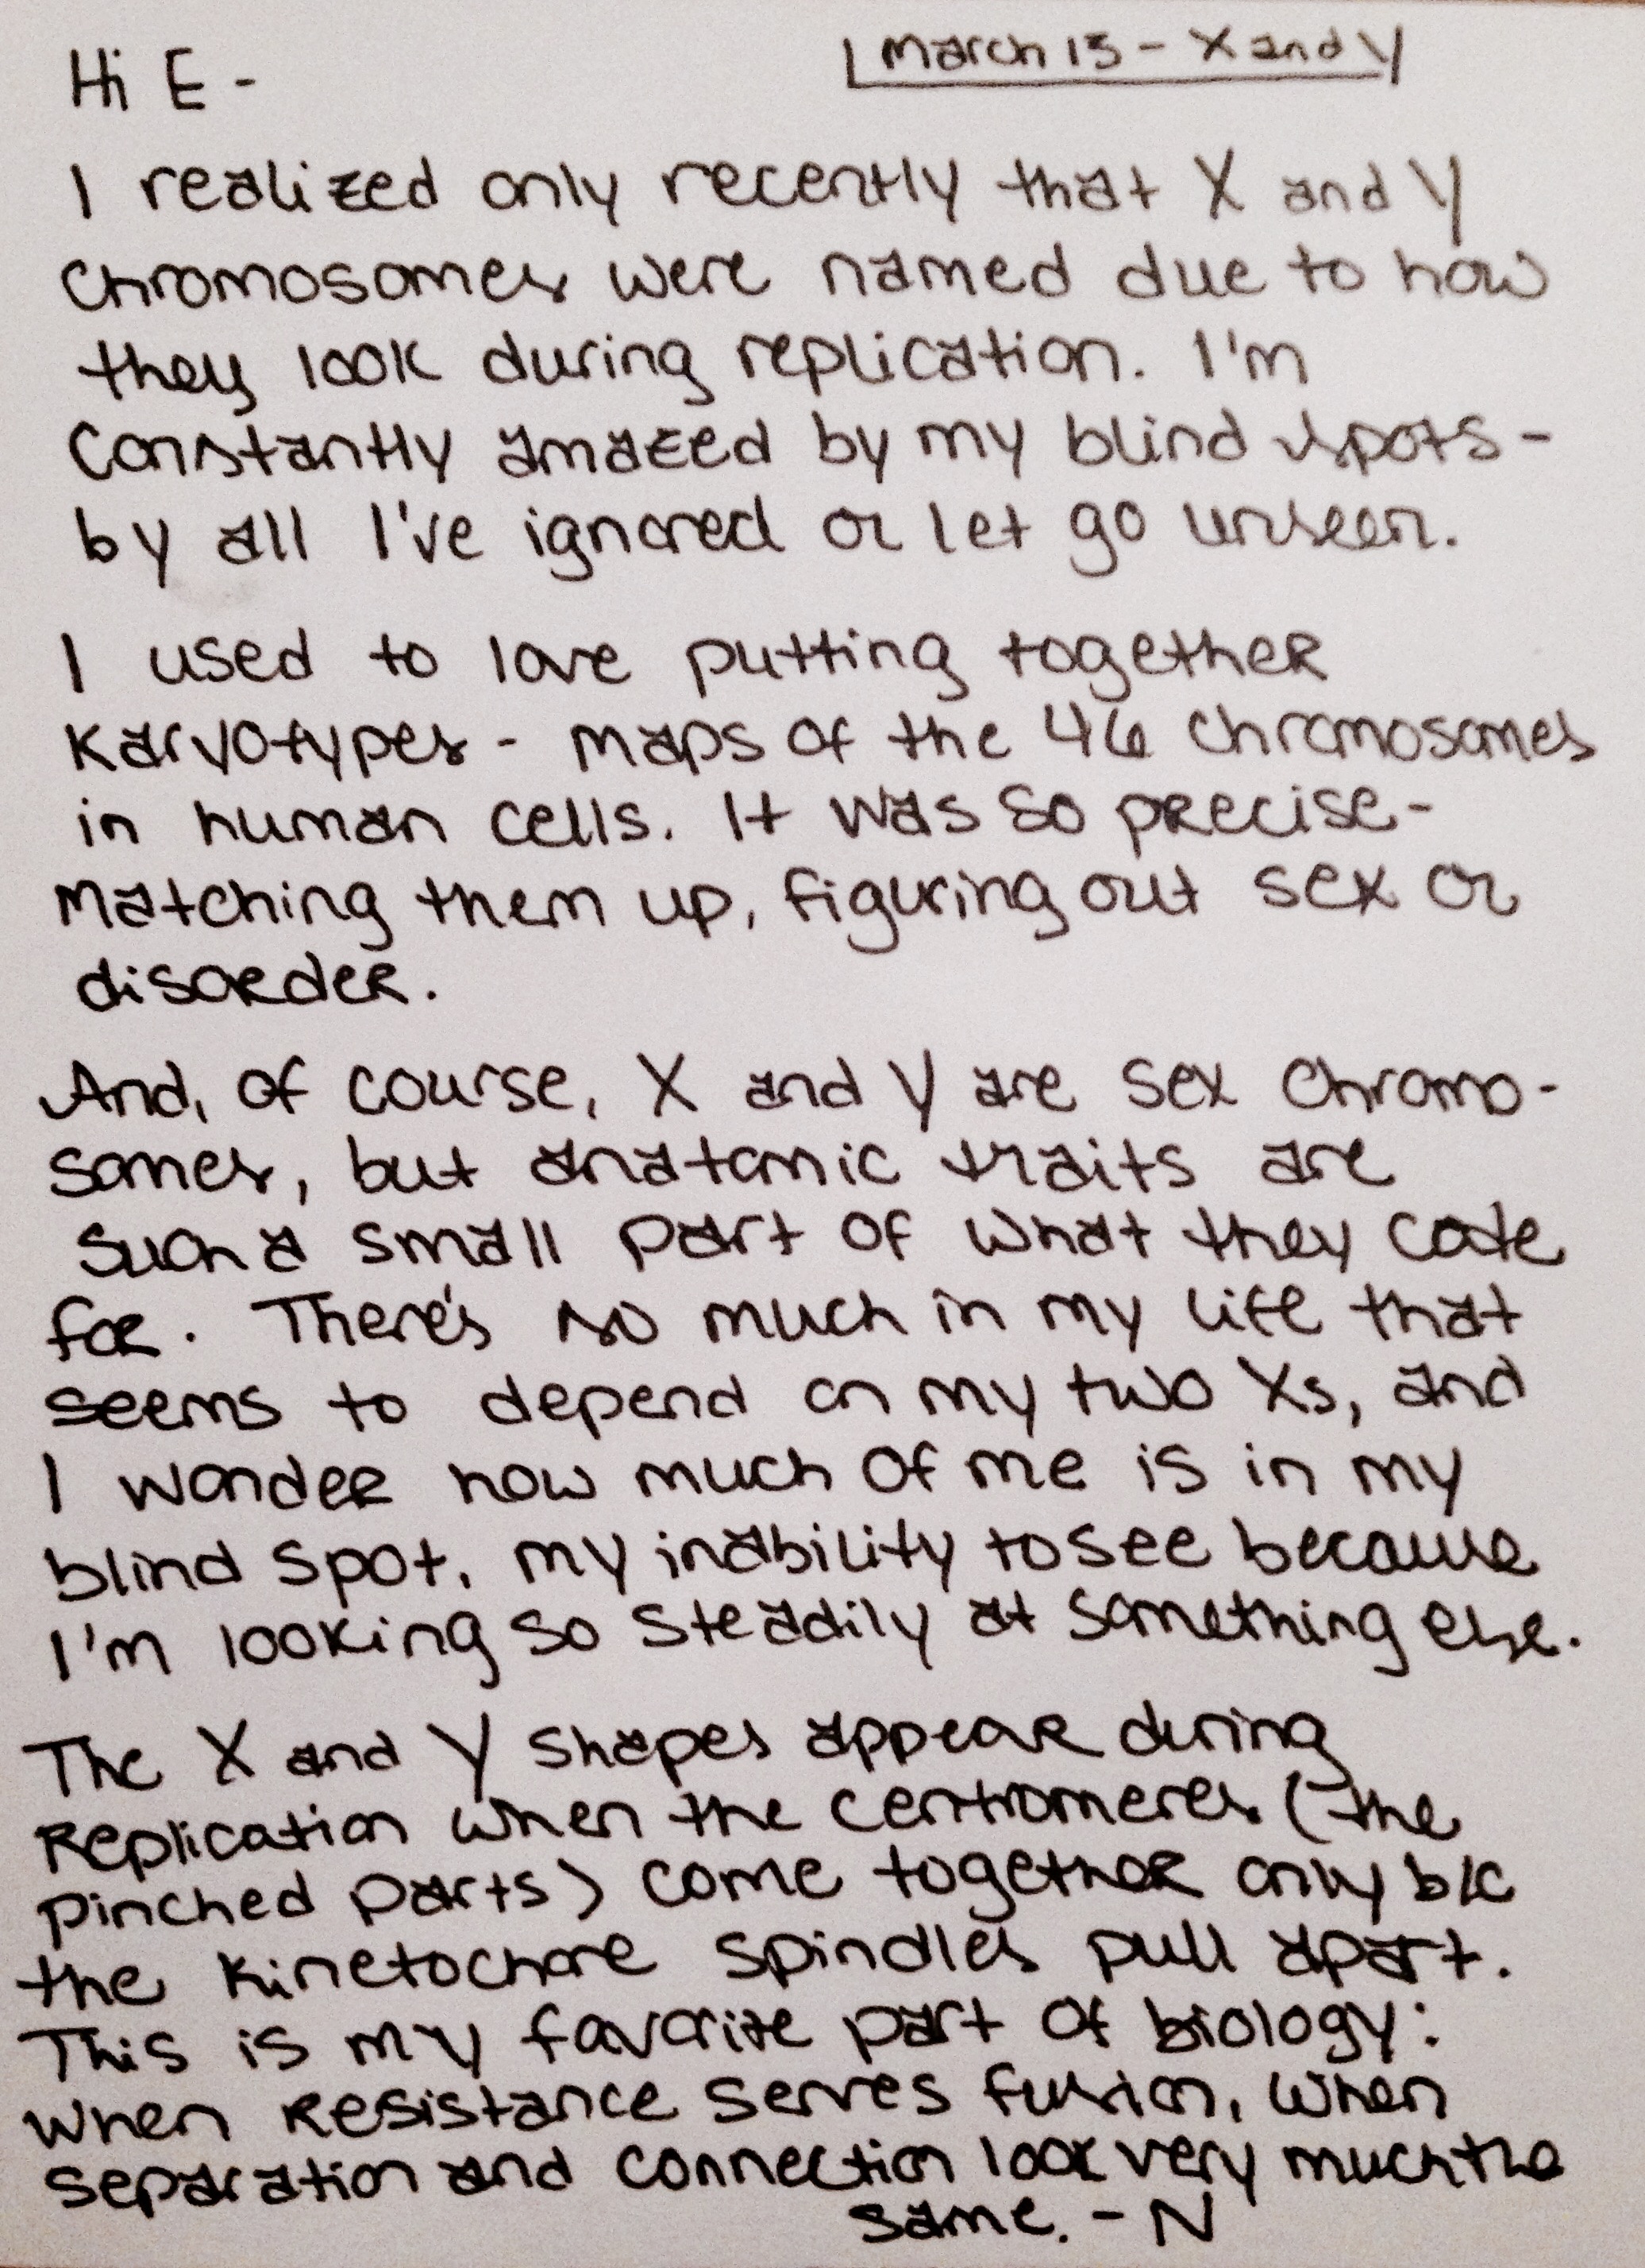 March 13 - X and Y
Hi E -
I realized only recently that X and Y
chromosomes were named due to how
they look during replication. I'm
constantly amazed by my blind spots -
by all I've ignored or let go unseen.
I used to love putting together
karyotypes - maps of the 46 chromosomes
in human cells. It was so precise -
matching them up, figuring out sex or
disorder.
And, of course, X and Y are sex chromo-
somes, but anatomic traits are
such a small part of what they code
for. There's so much in my life that
seems to depend on my two Xs, and
I wonder how much of me is in my
blind spot, my inability to see because
I'm looking so steadily at something else.
The X and Y shapes appear during
replication when the centromeres (the
pinched parts) come together only b/c
the kinetochore spindles pull apart.
This is my favorite part of biology:
when resistance serves fusion, when
separation and connection look very much the
same. - N